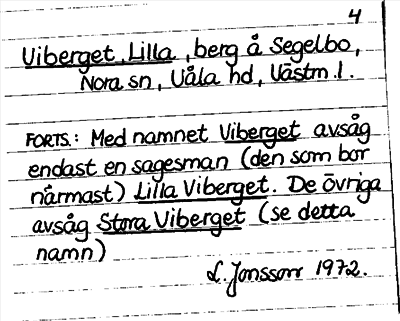 4
Viberget, Lilla, berg å Segelbo,
Nora sn, Våla hd, Västm.l.
FORTS.: Med namnet Viberget avsåg
endast en sagesman (den som bor
närmast) Lilla Viberget. De övriga
avsåg Stora Viberget (se detta
namn)
L. Jonsson 1972.